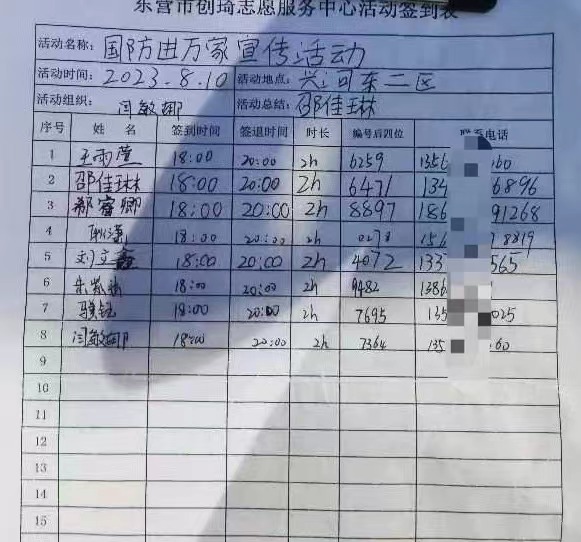 东营市创琦志愿服务中心活动签到表
活动名称: 国防进万家宣传活动
活动时间: 2023.8.10 活动地点: 兴河东二区
活动组织: 闫敏娜 活动总结: 邵佳琳
序号 姓 名 签到时间 签退时间 时长 编号后四位 联系电话
1 王雨萱 18:00 20:00 2h 6259 1356 60
2 邵佳琳 18:00 20:00 2h 6471 134 6896
3 郝睿卿 18:00 20:00 2h 8897 186 91268
4 18:00 20:00 2h 0278 156 8819
5 刘文鑫 18:00 20:00 2h 4072 133 565
6 18:00 20:00 2h 9482 1386
7 18:00 20:00 2h 7695 135 025
8 闫敏娜 18:00 20:00 2h 7364 135 60
9
10
11
12
13
14
15